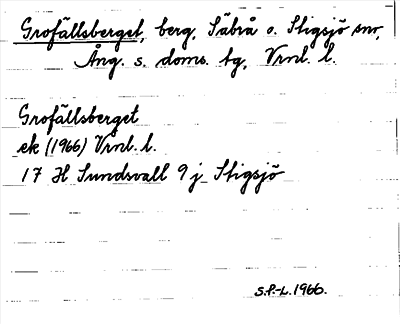 Grofällsberget, berg, Säbrå o. Stigsjö snr,
Ång. s. doms. tg, Vrnl. l.
Grofällsberget
ek (1966) Vrnl. l.
17 H Sundsvall 9 j Stigsjö
S.P.-L. 1966.